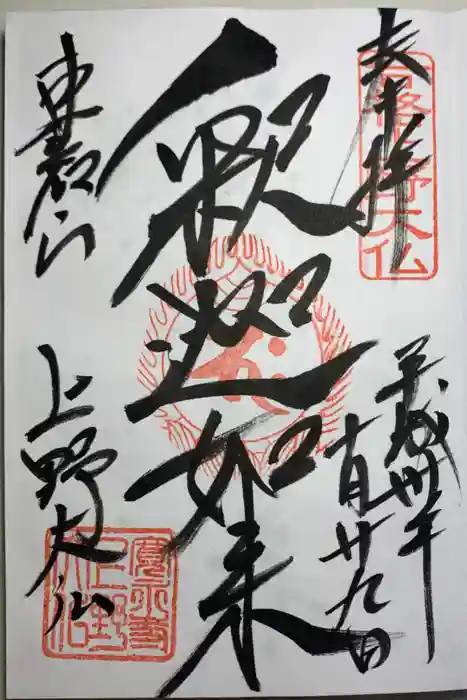 奉拝
合格上野大仏
平成卅年
十一月廿九日
釈迦如来
東叡山
上野大仏
寛永寺
上野
大仏